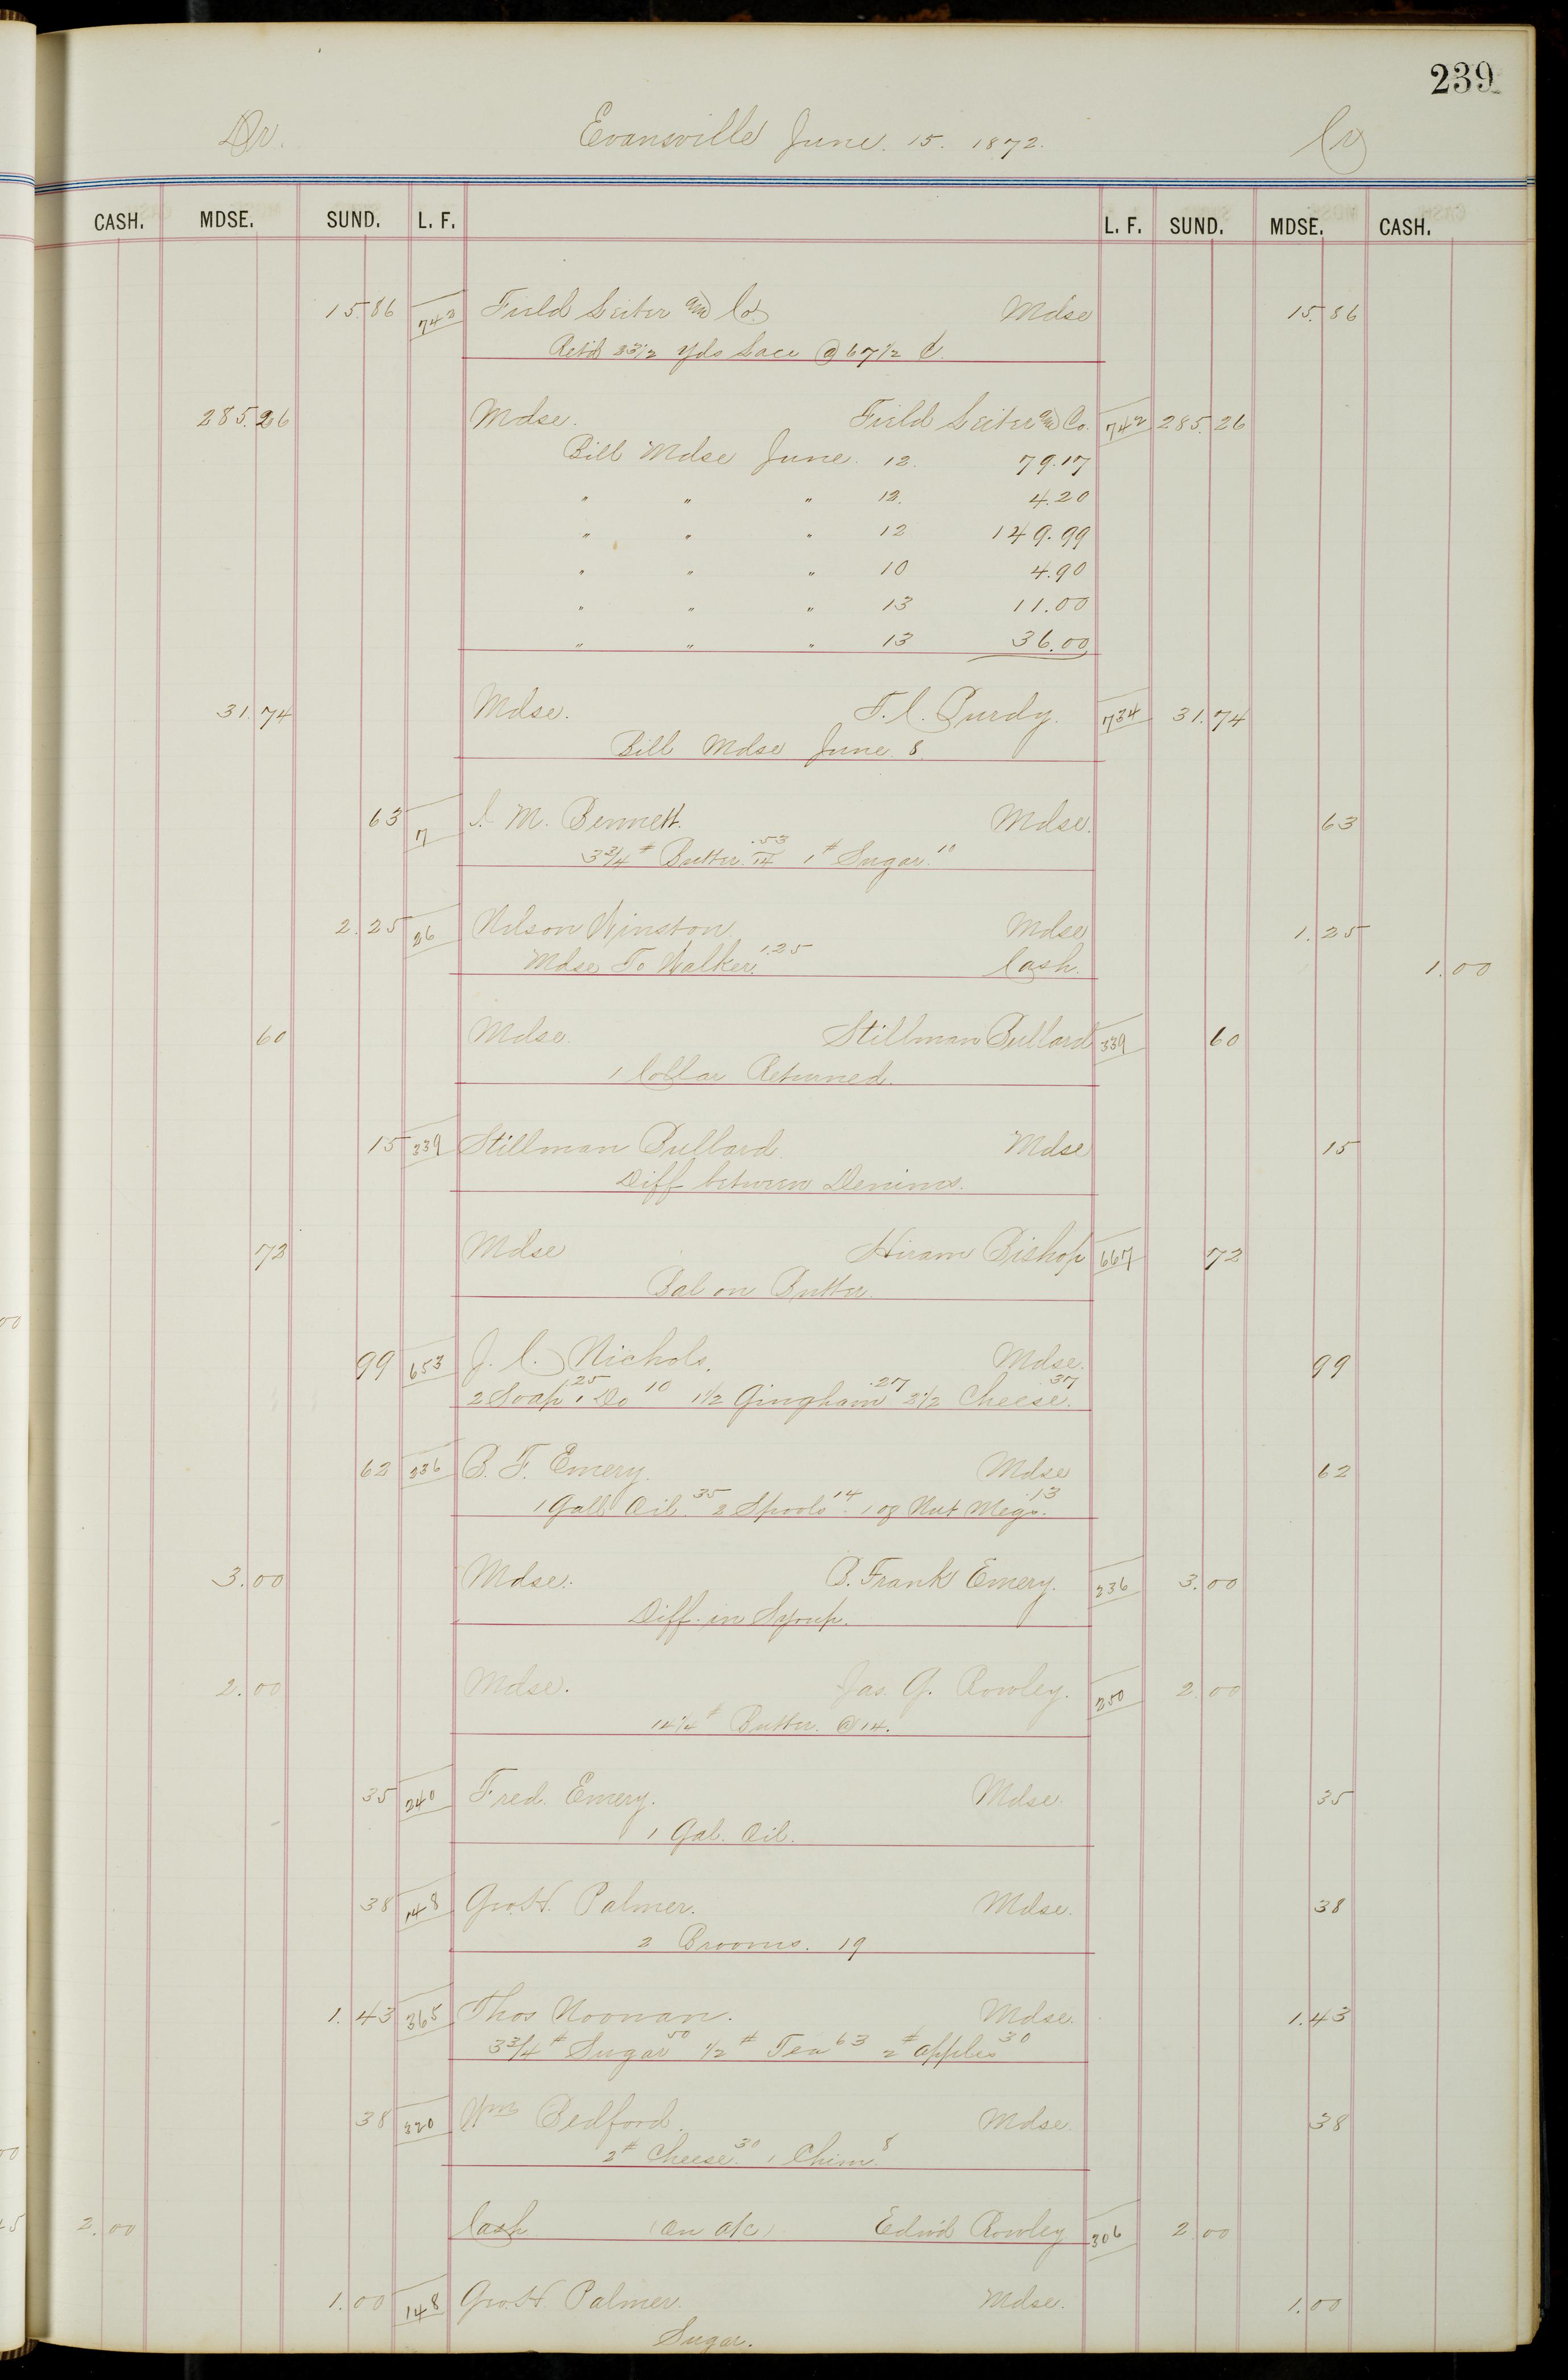 239
Dr. Evansville June. 15. 1872. Cr
CASH. MDSE. SUND. L. F. L. F. SUND. MDSE. CASH.
15.86 742 Field Leiter and Co. Mdse 15.86
Retd 23 1/2 yds Lace @ 67 1/2 ¢.
285.26 Mdse. Field Leiter and Co. 742 285.26
Bill Mdse June. 12. 79.17
" " " 12. 4.20
" " " 12 149.99
" " " 10 4.90
" " " 13 11.00
" " " 13 36.00
31.74 Mdse. T. C. Purdy. 734 31.74
Bill Mdse June. 8.
63 7 I. M. Bennett. Mdse. 63
3 3/4 # Butter. 14 .53 1 # Sugar. 10
2.25 26 Nelson Winston Mdse 1.25
Mdse To Walker. 1.25 Cash. 1.00
60 Mdse. Stillman Bullard 339 60
1 Collar Returned.
15 339 Stillman Bullard. Mdse 15
Diff between Denims.
72 Mdse Hiram Bishop 667 72
Bal on Butter.
99 653 J. C. Nichols. Mdse. 99
2 Soap .25 1 Do 10 1 1/2 Gingham .27 2 1/2 Cheese. 37
62 236 B. F. Emery. Mdse 62
1 Gall Oil. 35 2 Spools 14. 1 oz Nut Megs. 13
3.00 Mdse. B. Frank Emery. 236 3.00
Diff. in Syrup.
2.00 Mdse. Jas. G. Rowley. 250 2.00
14 1/4 # Butter. @ 14.
35 240 Fred. Emery. Mdse. 35
1 Gal. Oil.
38 148 Geo. H. Palmer. Mdse. 38
2 Brooms. 19
1.43 365 Thos Noonan. Mdse. 1.43
3 3/4 # Sugar 50 1/2 # Tea 63 2 # apples 30
38 320 Wm Bedford. Mdse. 38
2 # Cheese. 30 1 Chim. 8
2.00 Cash (on a/c) Edw'd Rowley 306 2.00
1.00 148 Geo. H. Palmer. Mdse. 1.00
Sugar.